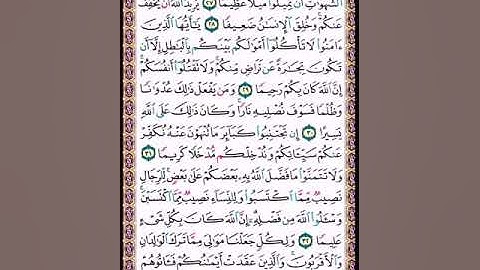 ٱلشَّهَوَٰتِ أَن تَمِيلُوا۟ مَيْلًا عَظِيمًا ٢٧ يُرِيدُ ٱللَّهُ أَن يُخَفِّفَ
عَنكُمْ وَخُلِقَ ٱلْإِنسَٰنُ ضَعِيفًا ٢٨ يَٰٓأَيُّهَا ٱلَّذِينَ
ءَامَنُوا۟ لَا تَأْكُلُوٓا۟ أَمْوَٰلَكُم بَيْنَكُم بِٱلْبَٰطِلِ إِلَّآ أَن
تَكُونَ تِجَٰرَةً عَن تَرَاضٍ مِّنكُمْ وَلَا تَقْتُلُوٓا۟ أَنفُسَكُمْ
إِنَّ ٱللَّهَ كَانَ بِكُمْ رَحِيمًا ٢٩ وَمَن يَفْعَلْ ذَٰلِكَ عُدْوَٰنًا
وَظُلْمًا فَسَوْفَ نُصْلِيهِ نَارًا وَكَانَ ذَٰلِكَ عَلَى ٱللَّهِ
يَسِيرًا ٣٠ إِن تَجْتَنِبُوا۟ كَبَآئِرَ مَا تُنْهَوْنَ عَنْهُ نُكَفِّرْ
عَنكُمْ سَيِّـَٔاتِكُمْ وَنُدْخِلْكُم مُّدْخَلًا كَرِيمًا ٣١
وَلَا تَتَمَنَّوْا۟ مَا فَضَّلَ ٱللَّهُ بِهِۦ بَعْضَكُمْ عَلَىٰ بَعْضٍ لِّلرِّجَالِ
نَصِيبٌ مِّمَّا ٱكْتَسَبُوا۟ وَلِلنِّسَآءِ نَصِيبٌ مِّمَّا ٱكْتَسَبْنَ
وَسْـَٔلُوا۟ ٱللَّهَ مِن فَضْلِهِۦٓ إِنَّ ٱللَّهَ كَانَ بِكُلِّ شَىْءٍ
عَلِيمًا ٣٢ وَلِكُلٍّ جَعَلْنَا مَوَٰلِىَ مِمَّا تَرَكَ ٱلْوَٰلِدَانِ
وَٱلْأَقْرَبُونَ وَٱلَّذِينَ عَقَدَتْ أَيْمَٰنُكُمْ فَـَٔاتُوهُمْ